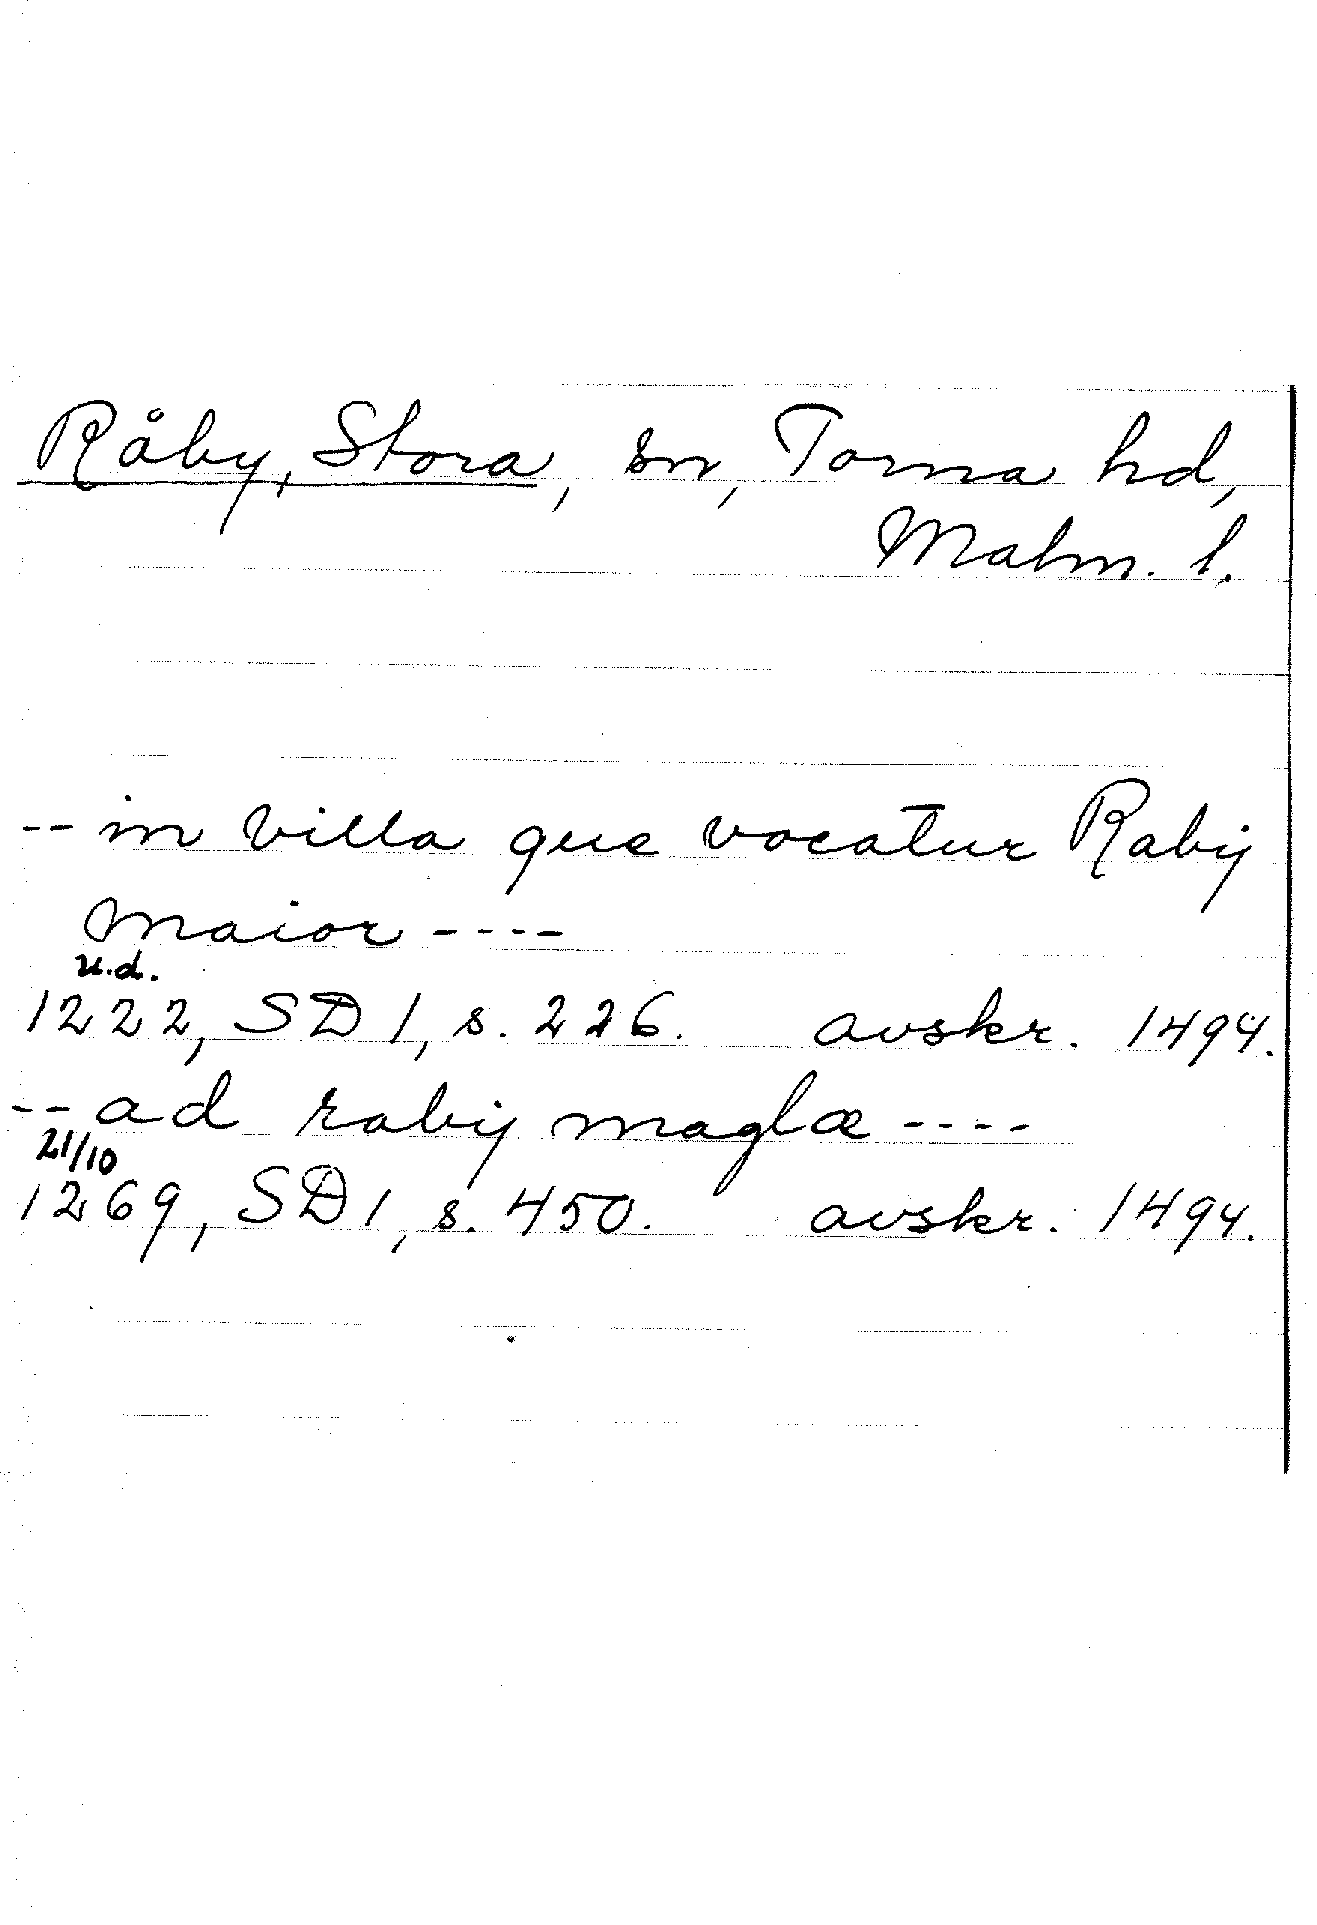 Råby, Stora, sn, Torna hd,
Malm. l.
-- in villa que vocatur Rabÿ
maior ----
u.d.
1222, SD 1, s. 226. avskr. 1494.
-- ad rabÿ maglæ ----
21/10
1269, SD 1, s. 450. avskr. 1494.